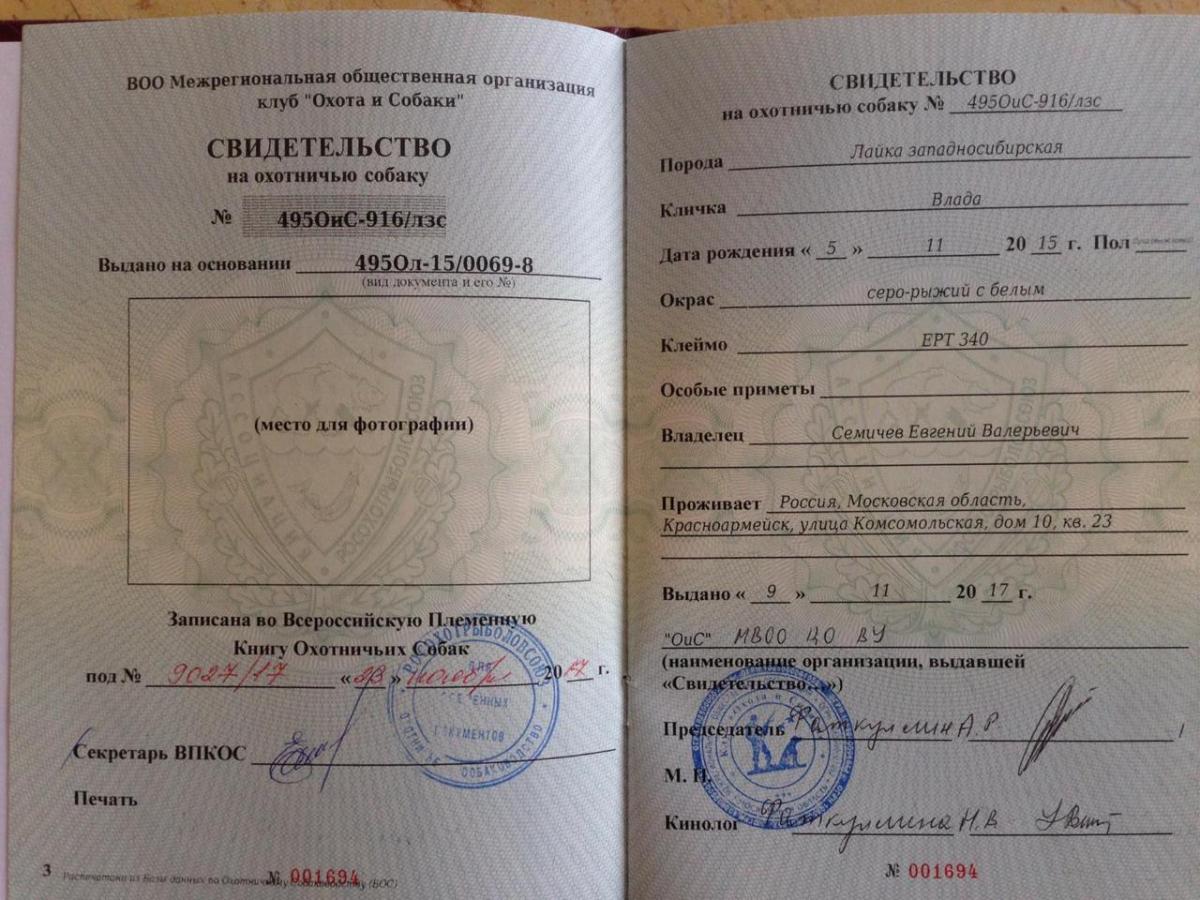 ВОО Межрегиональная общественная организация
клуб "Охота и Собаки"
СВИДЕТЕЛЬСТВО
на охотничью собаку
№ 495ОиС-916/лзс
Выдано на основании 495Ол-15/0069-8
(вид документа и его №)
(место для фотографии)
Записана во Всероссийскую Племенную
Книгу Охотничьих Собак
под № 9027/17 «23» ноября 2017 г.
РОСОХОТРЫБОЛОВСОЮЗ
ДЛЯ
ДОКУМЕНТОВ
ОХОТНИЧЬЕ СОБАКОВОДСТВО
Секретарь ВПКОС
Печать
3 Распечатано из Базы данных по Охотничьему Собаководству (БОС)
№ 001694
СВИДЕТЕЛЬСТВО
на охотничью собаку № 495ОиС-916/лзс
Порода Лайка западносибирская
Кличка Влада
Дата рождения « 5 » 11 20 15 г. Пол
Окрас серо-рыжий с белым
Клеймо ЕРТ 340
Особые приметы
Владелец Семичев Евгений Валерьевич
Проживает Россия, Московская область,
Красноармейск, улица Комсомольская, дом 10, кв. 23
Выдано « 9 » 11 20 17 г.
"ОиС" МВОО ЦО ВУ
(наименование организации, выдавшей
«Свидетельство...»)
Председатель Фаткуллин А.Р.
М. П.
Кинолог Фаткуллина Н.В
№ 001694